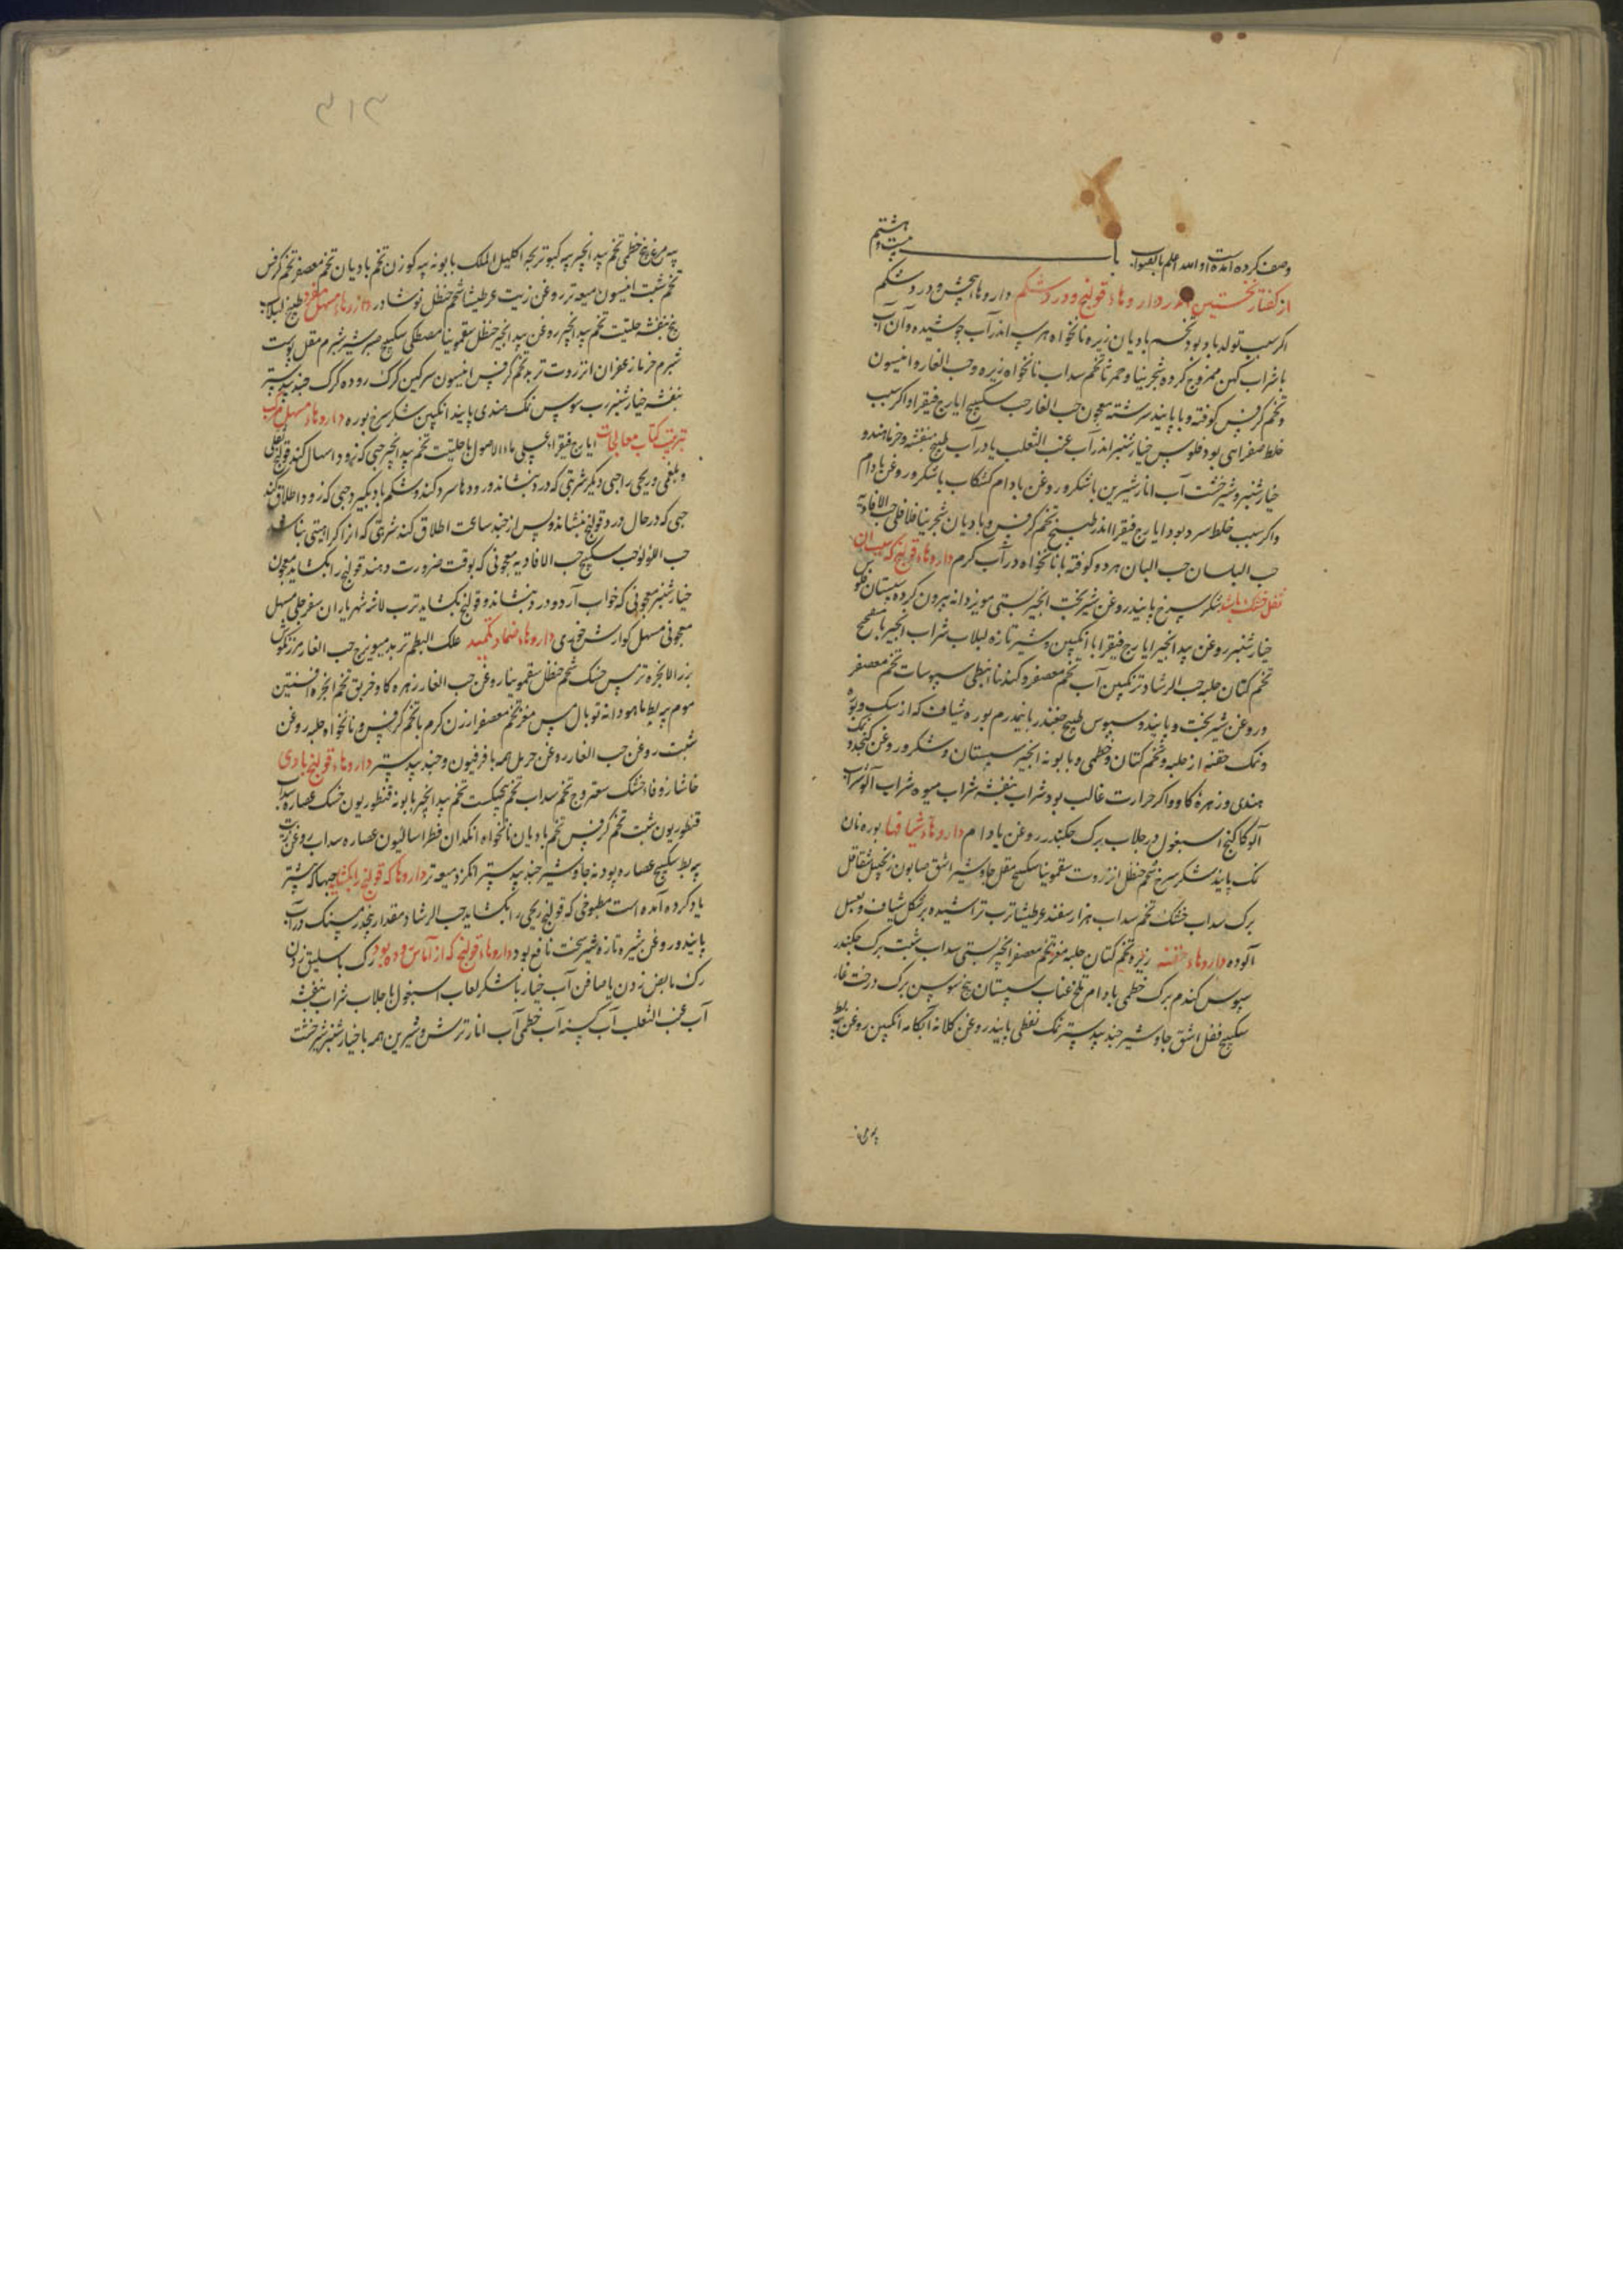 وصف کرده آمده است و الله اعلم بالصواب باب بیست و هشتم
از گفتار نخستین اندر داروهاء قولنج و درد شکم داروهاء پیچش و درد شکم
اگر سبب تولد باد بود تخم بادیان زیره نانخواه هر سه اندر آب جوشیده و آن آب
با شراب کهن ممزوج کرده شجرینا و حمرنا تخم سداب نانخواه زیره و حب الغار و انیسون
و تخم کرفس کوفته و با پانید سرشته معجون حب الغار حب سکبینج ایارج فیقرا و اگر سبب
خلط صفرایی بود فلوس خیارشنبر اندر آب عنب الثعلب یا در آب طبیخ بنفشه و خرما هندو
خیارشنبر و شیرخشت آب انار شیرین با شکر و روغن بادام کشکاب با شکر و روغن بادام
و اگر سبب خلط سرد بود ایارج فیقرا اندر طبیخ تخم کرفس و بادیان شجرینا فلافلی حب الافادیه
حب البلسان حب البان هر دو کوفته با نانخواه در آب گرم داروهاء قولنج که سبب آن
ثفل خشک باشد شکر سرخ پانید روغن شیرپخت انجیر بستی مویز دانه بیرون کرده سپستان فلوس
خیارشنبر روغن بیدانجیر ایارج فیقرا با انگبین و شیر تازه لبلاب شراب انجیر با
تخم کتان حلبه حب الرشاد ترنگبین آب تخم معصفر و گندنا نبطی سپوسات تخم معصفر
و روغن شیرپخت و پانید و سپوس طبیخ چغندر پانیدرم بوره شیاف که از شکر و بوره
و نمک حقنه از حلبه و تخم کتان و خطمی و بابونه انجیر سپستان و شکر و روغن کنجد و نمک
هندی و زهره گاو و اگر حرارت غالب بود شراب بنفشه شراب میوه شراب آلو شراب
آلوکاکنج اسبغول در جلاب برگ چکندر روغن بادام داروهاء شیافها بوره نان
نمک پانید شکر سرخ شحم حنظل انزروت سقمونیا سکبینج مقل جاوشیر اشق صابون زنجبیل شقاقل
برگ سداب خشک تخم سداب هزار سفند عرطنیثا ترب تراشیده بر شکل شیاف و بعسل
آلوده داروهاء حقنه زیره تخم کتان حلبه مغز تخم معصفر انجیر بستی سداب شبت برگ چکندر
سپوس گندم برگ خطمی بادام تلخ عناب سپستان بیخ سوسن برگ درخت غار
سکبینج مقل اشق جاوشیر جندبیدستر نمک نفطی پانید روغن کلانه آبکامه انگبین روغن
۳۱۳
پیه مرغ بیخ خطمی تخم بیدانجیر پیه کبوتربچه اکلیل الملک بابونه پیه گوزن تخم بادیان تخم معصفر تخم کرفس
تخم شبت انیسون میعه تر روغن زیت عرطنیثا شحم حنظل نوشادر داروهاء مسهل مفرد طبیخ لبلاب
بیخ بنفشه حلتیت تخم بیدانجیر روغن بیدانجیر حنظل سقمونیا مصطکی سکبینج صبر شیر شبرم مقل پوست
شبرم خرما زعفران انزروت تربد تخم کرفس انیسون سرگین گرگ روده گرگ جندبیدستر
بنفشه خیارشنبر رب سوس نمک هندی پانید انگبین شکر سرخ بوره داروهاء مسهل مرکب
بترتیب کتاب معالجات ایارج فیقرا ماء الاصول با حلتیت تخم بیدانجیر حبی که زود اسهال کند قولنج ثفلی
و بلغمی و ریحی را حبی دیگر شربتی که درد بنشاند و رودها سرد کند و شکم باد بگیرد و حبی که زود اطلاق کند
حبی که در حال درد قولنج بنشاند و پس از چند ساعت اطلاق کند شربتی که از آن کراهیتی نباشد
حب اللؤلؤ حب سکبینج حب الافادیه معجونی که بوقت ضرورت دهند قولنج را بگشاید معجون
خیارشنبر معجونی که خواب آرد و درد بنشاند و قولنج بگشاید ترب لاشه شهریاران سفرجلی مسهل
معجونی مسهل گوارش خوزی داروهاء ضماد تکمید علک البطم تربد میویزج حب الغار مرزنگوش
بزر الانجره ترمس خشک شحم حنظل سقمونیا روغن حب الغار زهره گاو خربق تخم انجره افسنتین
موم پیه بط ماهودانه توبال مس مغز تخم معصفر ارزن گرم با تخم کرفس و نانخواه حلبه روغن
شبت روغن حب الغار روغن حرمل همه با فرفیون و جندبیدستر داروهاء قولنج بادی
حاشا زوفا خشک سعتر وج تخم سداب تخم پنجنگشت تخم بیدانجیر بابونه قنطوریون خشک عصاره سداب
قنطوریون شبت تخم کرفس تخم بادیان نانخواه انگدان فطراسالیون عصاره سداب روغن زیت
پیه بط سکبینج عصاره پودنه جاوشیر جندبیدستر انگزد میعه تر داروها که قولنج را بگشاید حبها که پیشتر
یاد کرده آمده است مطبوخی که قولنج ریحی را بگشاید حب الرشاد مقدار پنج درمسنگ در آب
پانید و روغن شیره تازه شیرپخت نافع بود داروهاء قولنج که از آماس روده بود رگ باسلیق زدن
رگ مابض زدن یا صافن آب خیار با شکر لعاب اسبغول با جلاب شراب بنفشه
آب عنب الثعلب آب کسنه آب خطمی آب انار ترش و شیرین همه با خیارشنبر شیرخشت